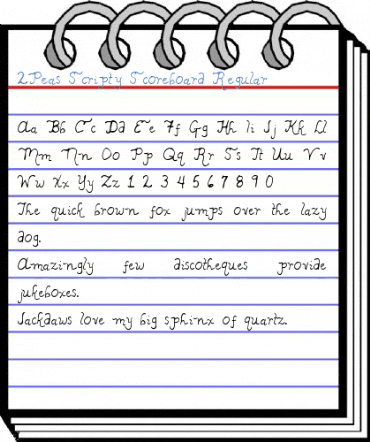 2Peas Scripty Scoreboard Regular
Aa Bb Cc Dd Ee Ff Gg Hh Ii Jj Kk Ll
Mm Nn Oo Pp Qq Rr Ss Tt Uu Vv
Ww Xx Yy Zz 1 2 3 4 5 6 7 8 9 0
The quick brown fox jumps over the lazy
dog.
Amazingly few discotheques provide
jukeboxes.
Jackdaws love my big sphinx of quartz.